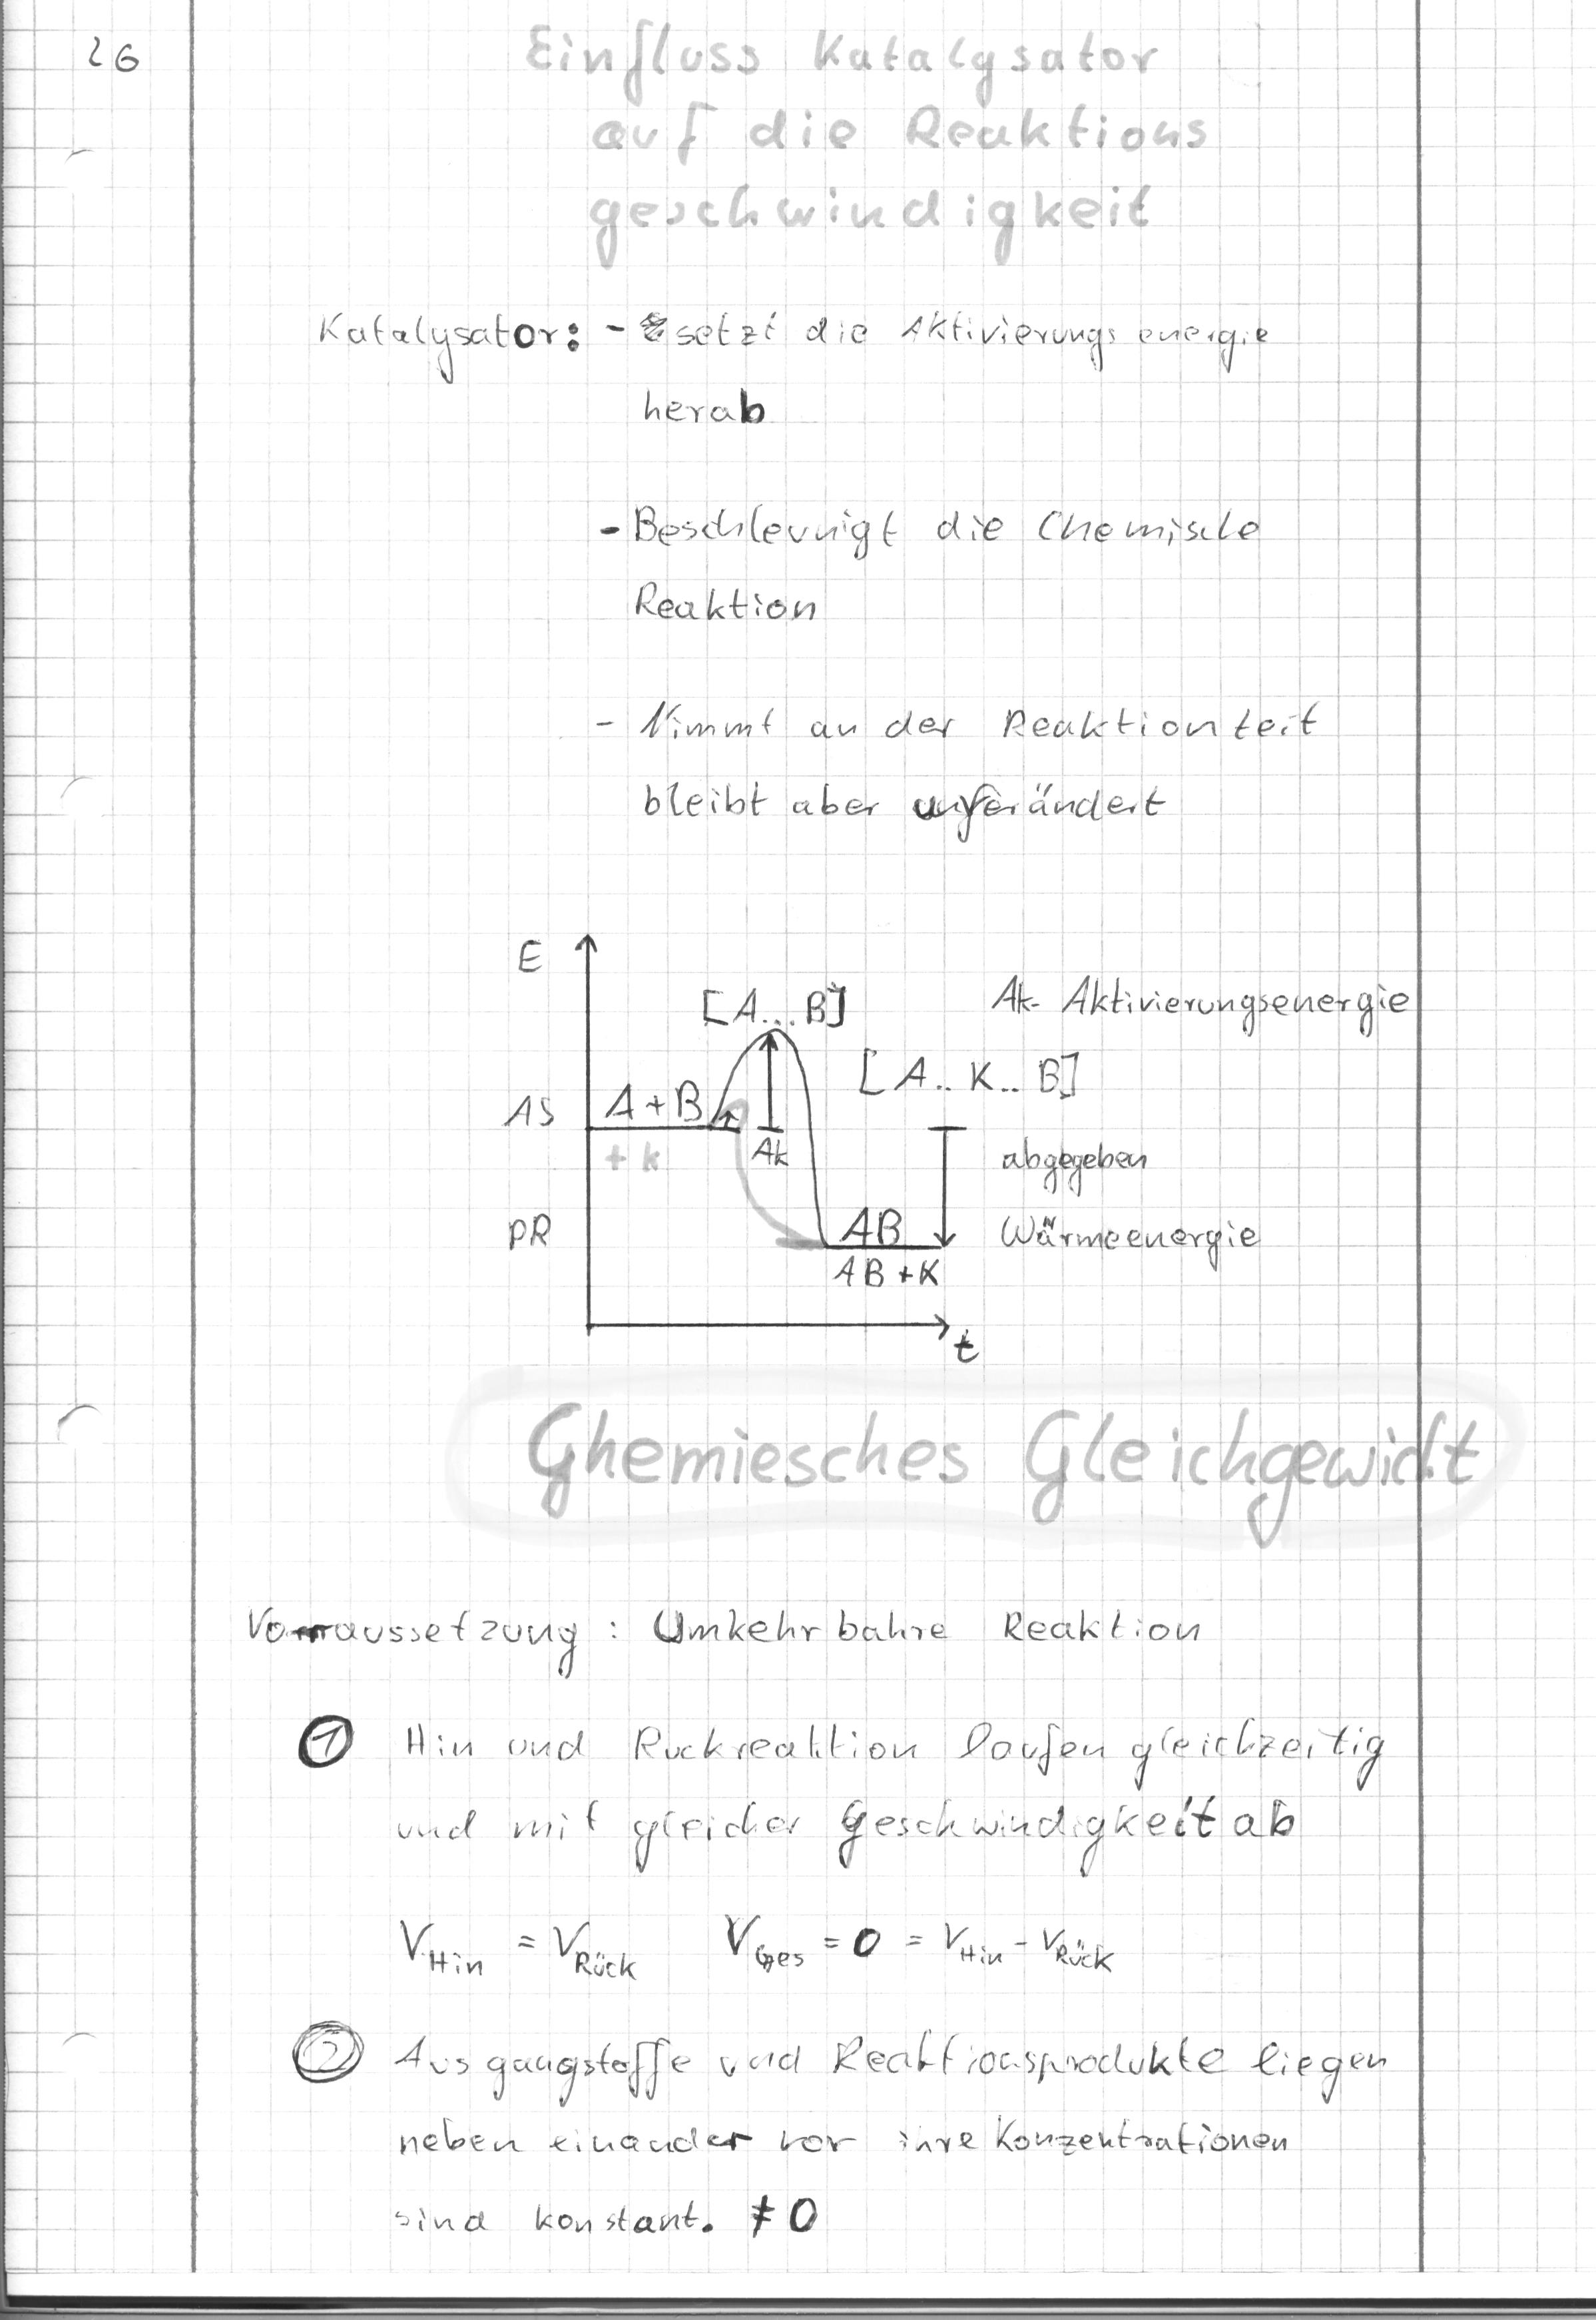 26
Einfluss Katalysator
auf die Reaktions
geschwindigkeit
Katalysator: - setzt die Aktivierungsenergie
herab
- Beschleunigt die Chemische
Reaktion
- Nimmt an der Reaktion teit
bleibt aber unverändert
E
[A...B]
Ak- Aktivierungsenergie
[A..K..B]
AS
A+B
+k
Ak
abgegeben
PR
AB
Wärmeenergie
AB+K
t
Ghemiesches Gleichgewicht
Vorraussetzung: Umkehrbahre Reaktion
1 Hin und Ruckreaktion laufen gleichzeitig
und mit gleicher Geschwindigkeit ab
V_Hin = V_Rück V_Ges = 0 = V_Hin - V_Rück
2 Ausgangstoffe und Reaktionsprodukte liegen
neben einander vor ihre Konzentrationen
sind konstant. ≠ 0